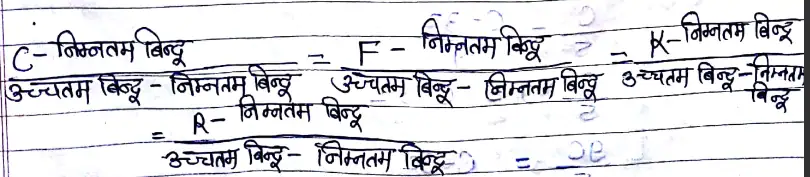 C - निम्नतम बिन्दू = F - निम्नतम बिन्दू = K - निम्नतम बिन्दू
उच्चतम बिन्दू - निम्नतम बिन्दू उच्चतम बिन्दू - निम्नतम बिन्दू उच्चतम बिन्दू - निम्नतम बिन्दू
= R - निम्नतम बिन्दू
उच्चतम बिन्दू - निम्नतम बिन्दू =